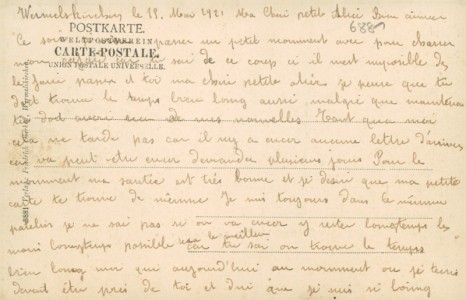 Wermelskirchen le 11 Mai 1921 Ma Chair petite Alice Bien aimée
688
POSTKARTE.
WELTPOSTVEREIN
CARTE-POSTALE.
UNION POSTALE UNIVERSELLE.
Ce soir passer un petit moment avec pour chasser
mon sai de ce coup ci il m'est imposible de
le faire parair et toi ma chair petite alice je pense que tu
doit trouver le temps bien long aussi malgré que maintenant
tu doit avoir recu de mes nouvelles Tant qua moi
cela me tarde pas car il ny a encor aucune lettre d'arriver
cela va peut etre encor demander plusieurs jours Pour le
momment ma santée est très bonne et je desir que ma petite
carte te trouve de mienne Je suis toujours dans le mème
patelin je ne sai pas si on va encor y rester lomgtemps le
moins lomgtemps posible sera le meillieur
car tu sai on trouve le temps
bien long moi qui aujourd'hui au momment ou je tecris
devait être près de toi et dire que je suis si loing